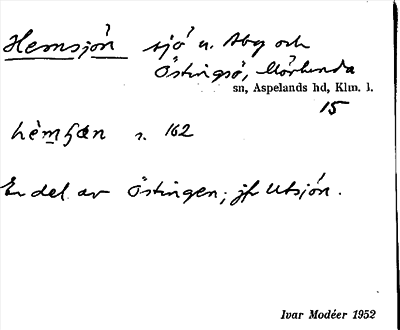 Hemsjön sjö u. Åby och
Östingsö, Mörlunda
sn, Aspelands hd, Klm. l.
15
hèmʃɶn s. 162
En del av Östingen; jfr Utsjön.
Ivar Modéer 1952